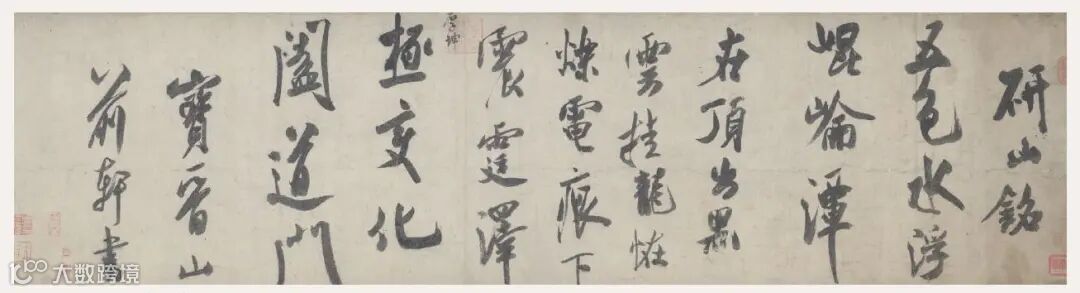 研山銘
五色水浮
崐崘潭
在頂出黑
雲挂龍恠
爍電痕下
震霆澤
極變化
闔道門
寶晉山
前軒書
大数跨境